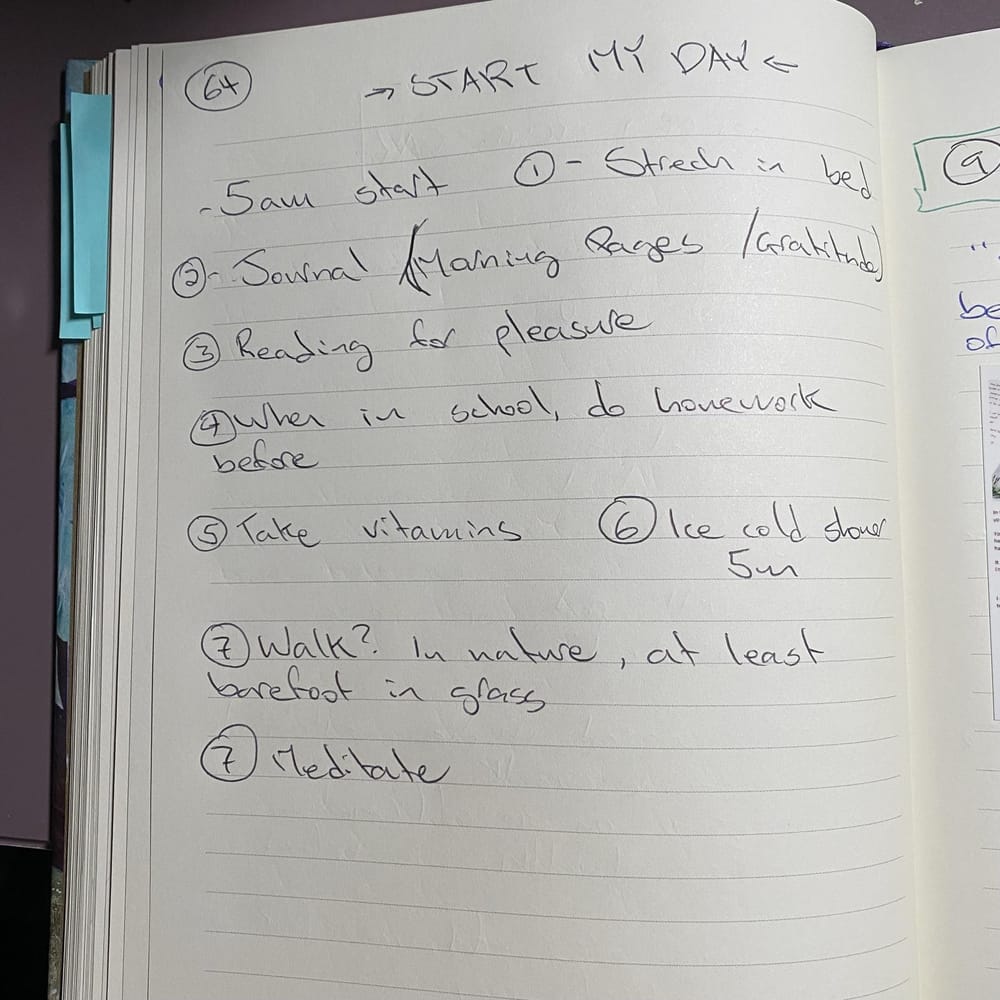 64
→ START MY DAY ←
- 5am start ① - Strech in bed
② - Journal (Morning Pages /Gratitude)
③ Reading for pleasure
④ When in school, do homework
before
⑤ Take vitamins ⑥ Ice cold shower
5m
⑦ Walk? In nature, at least
barefoot in grass
⑦ Meditate
9
be
of